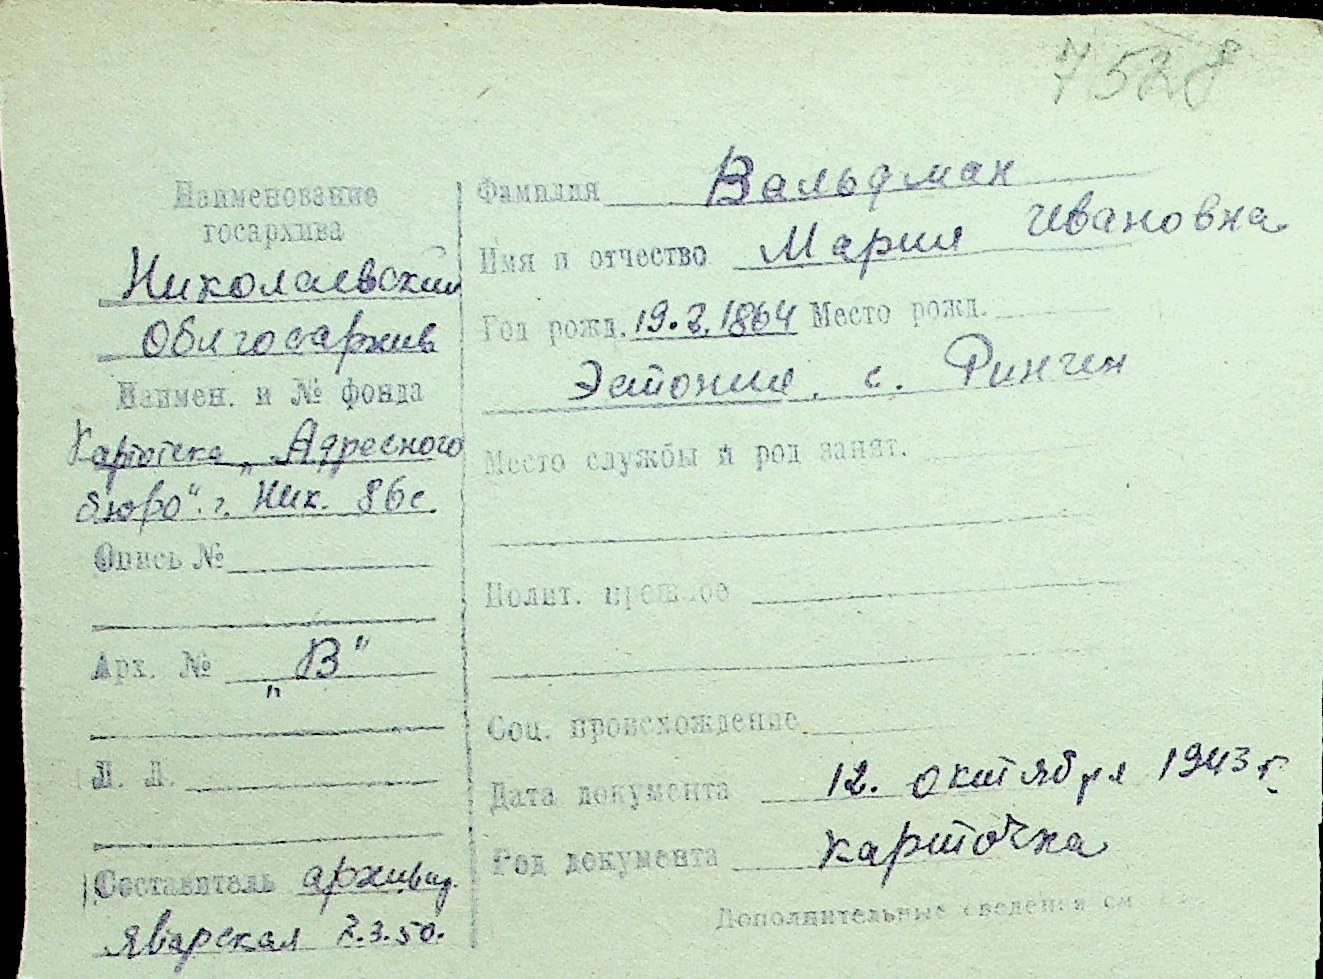 7528
Наименование
госархива
Николаевский
Облгосархив
Наимен. и № фонда
Картотека „Адресного
бюро". г. Ник.
Опись №
Арх. № „В"
Л. Л.
Составитель архивид.
Яварская 2.3.50.
Фамилия Вальдман
Имя и отчество Мария Ивановна
Год рожд. 19.2.1864 Место рожд.
Эстония, с. Ринген
Место службы и род занят.
Полит. прошлое
Соц. происхождение
Дата документа 12. октября 1943 г.
Род документа карточка
Дополнительные сведения см